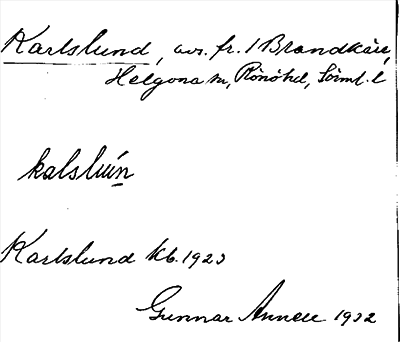 Karlslund, avs. fr. 1 Brandkärr,
Helgona sn, Rönö hd, Sörml. l
kalslun
Karlslund Kb. 1923
Gunnar Annell 1932